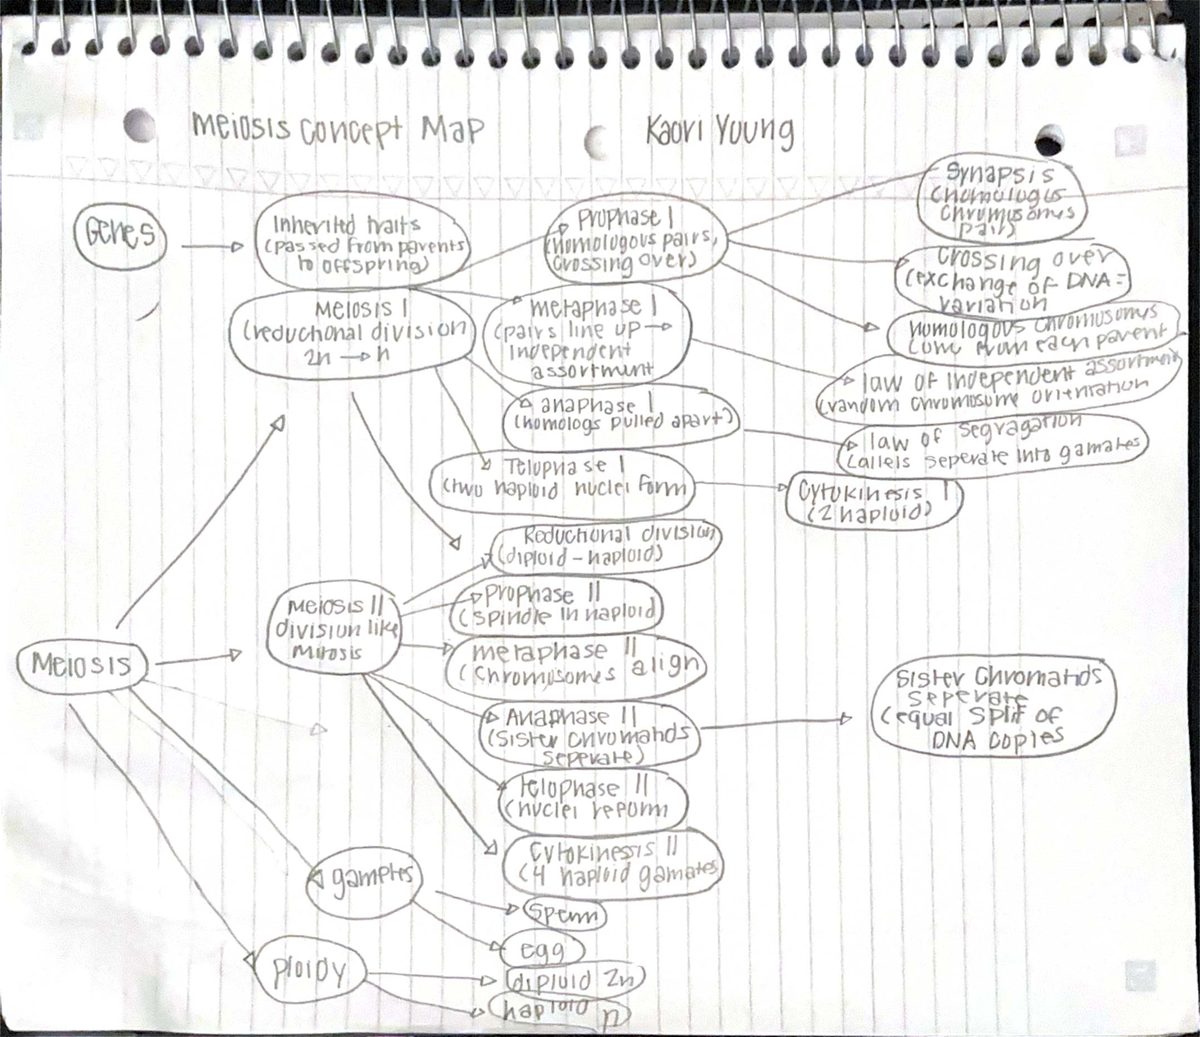 Meiosis Concept Map
Kaori Young
Genes
Inherited traits
(passed from parents
to offspring)
Meiosis I
(reductional division
2n → n
Prophase I
(homologous pairs,
crossing over)
metaphase I
(pairs line up →
independent
assortment
anaphase I
(homologs pulled apart)
Telophase I
(two haploid nuclei form)
Synapsis
chromosomes
pair)
Crossing over
(exchange of DNA =
variation
homologous chromosomes
(one from each parent
law of independent assortment
(random chromosome orientation
law of segragation
(allels seperate into gamates
Cytokinesis I
(2 haploid)
Meiosis
Meiosis II
division like
Mitosis
Reductional division
(diploid - haploid)
Prophase II
(spindle in haploid
metaphase II
(chromosomes align
Anaphase II
(sister chromatids
seperate)
telophase II
(nuclei reform
Cytokinesis II
(4 haploid gamates
Sister Chromatids
seperate
(equal split of
DNA copies
gametes
sperm
egg
ploidy
diploid 2n
haploid n